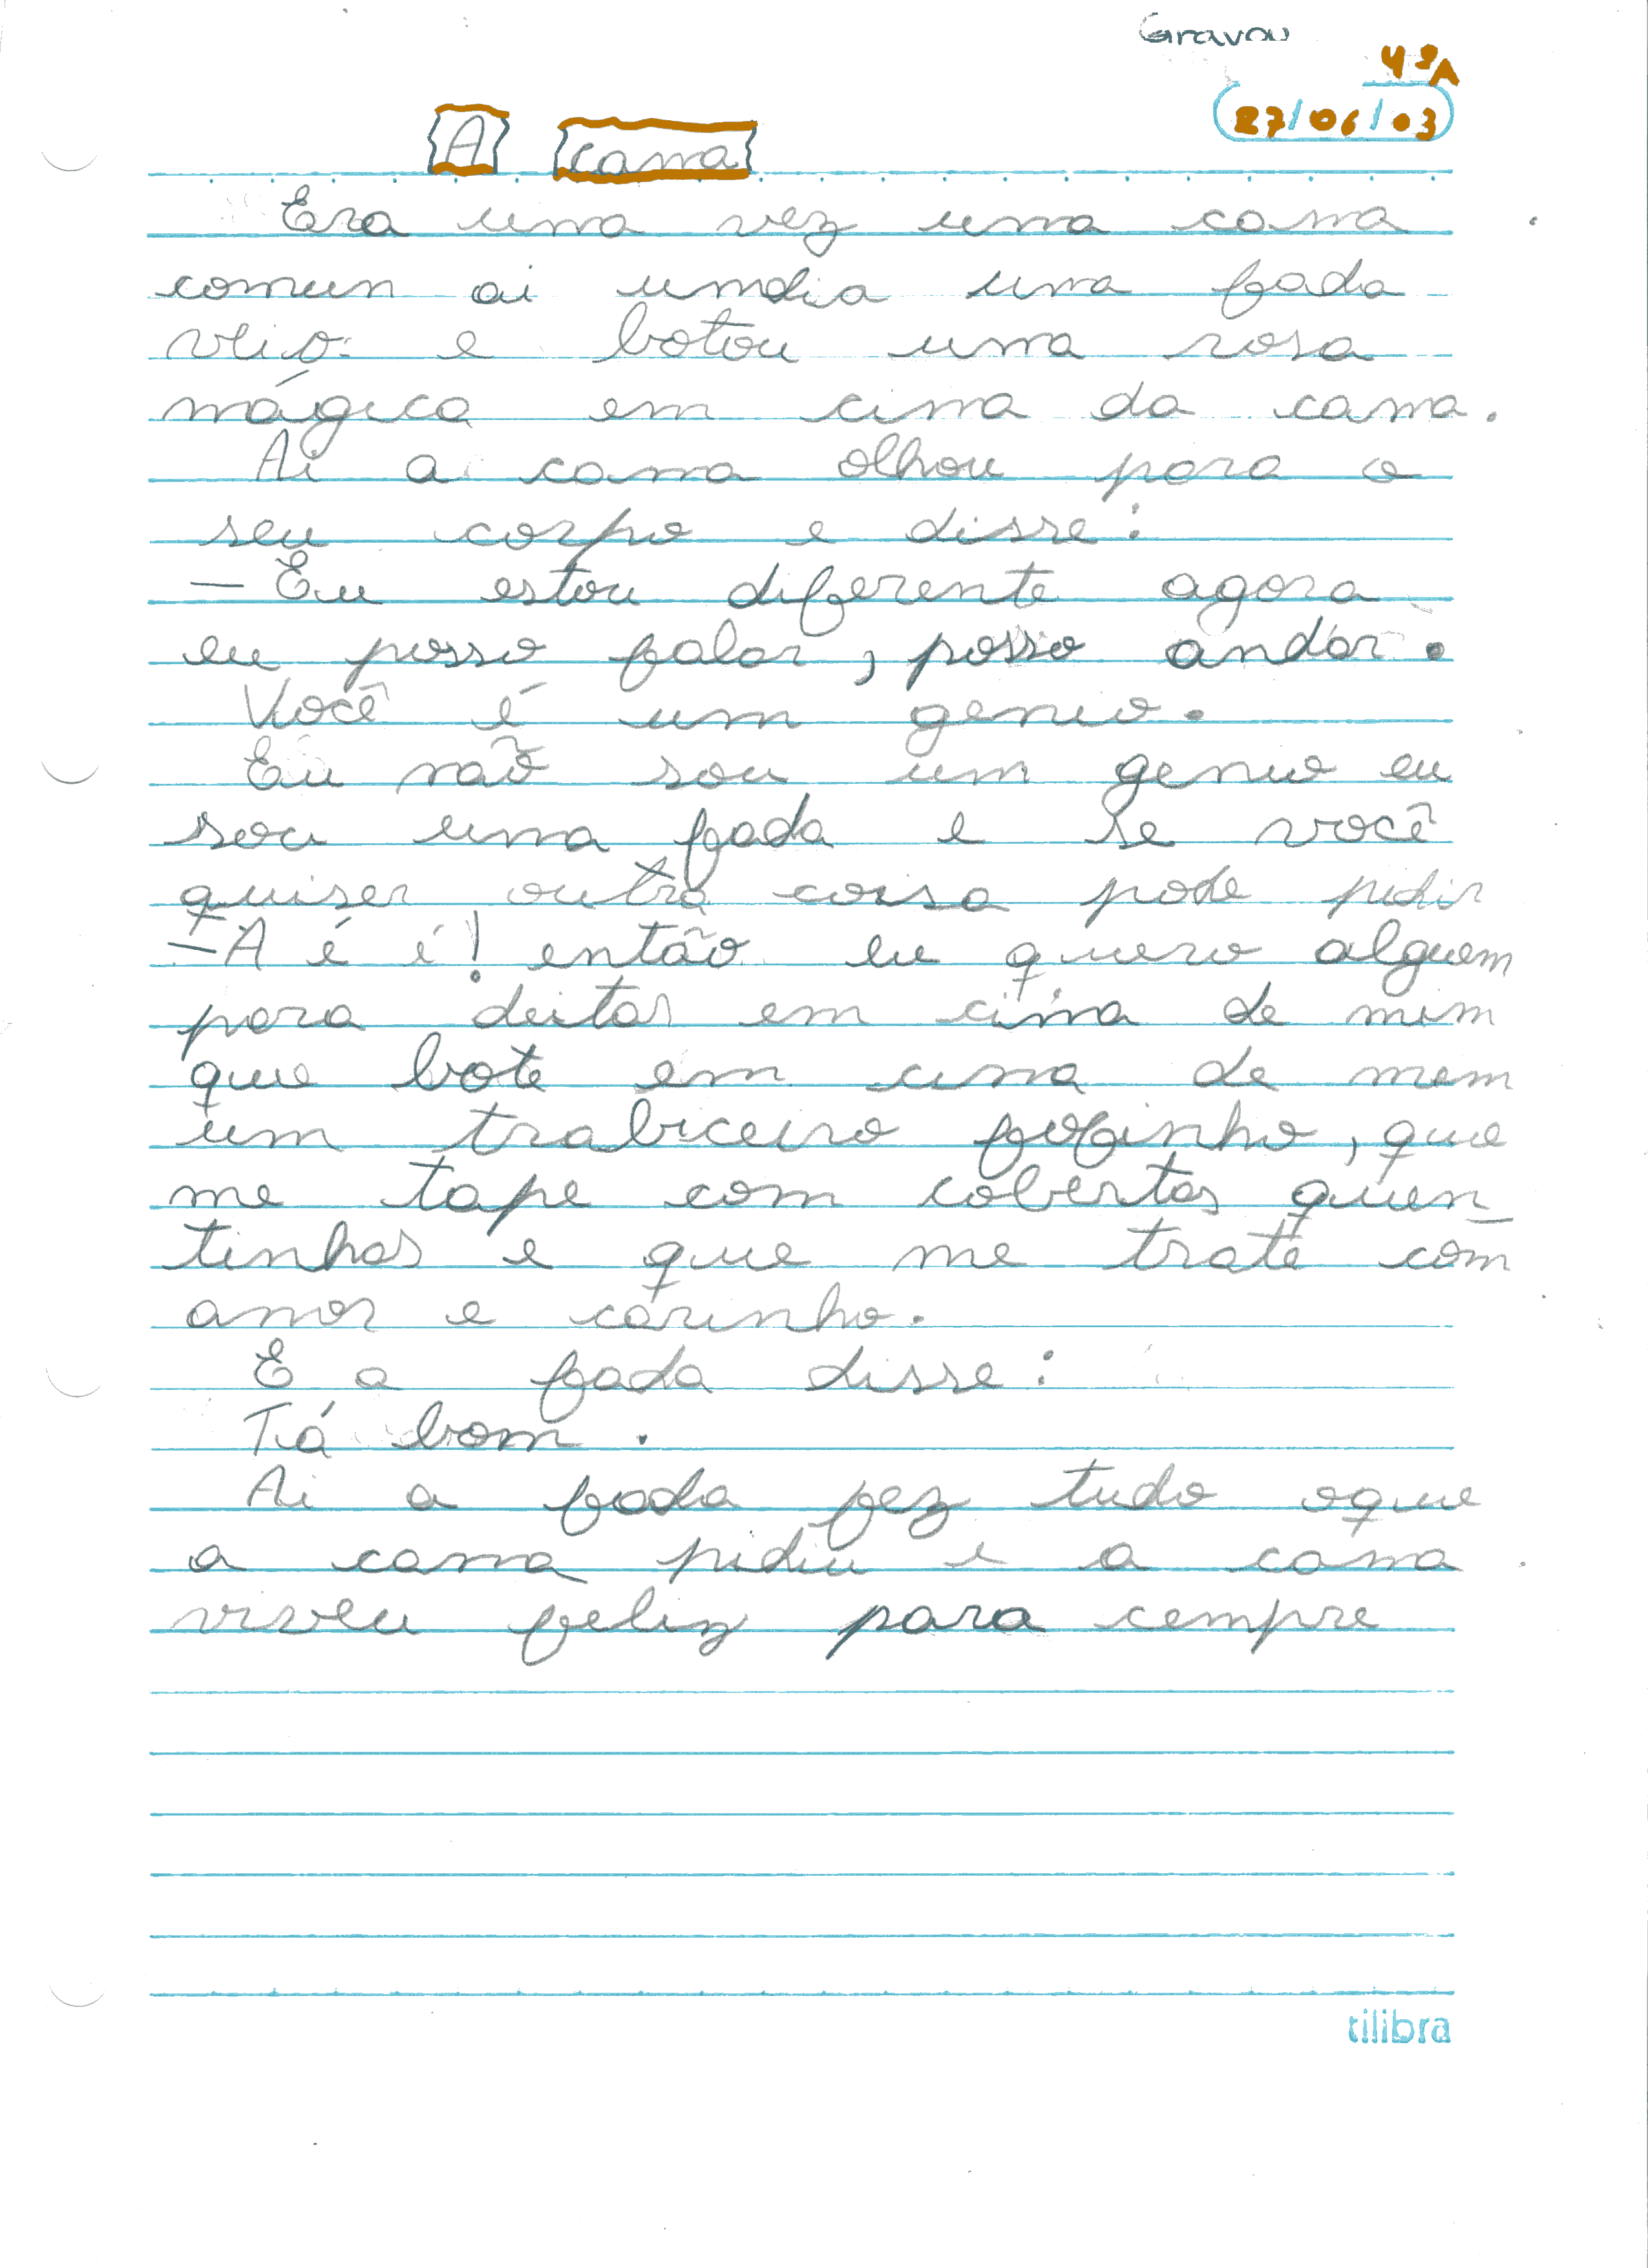 Gravou
4ªA
27/06/03
A cama
Era uma vez uma cama
comun ai umdia uma fada
veio e botou uma rosa
mágica em cima da cama.
Ai a cama olhou para o
seu corpo e disse:
— Eu estou diferente agora
eu posso falar, posso andar.
Você é um genio.
Eu não sou um genio eu
sou uma fada e se você
quiser outra coisa pode pidir
— A é é! então eu quero alguem
para deitar em cima de mim
que bote em cima de mem
um trabiceiro fofinho, que
me tape com cobertas quen-
tinhas e que me trate com
amor e carinho.
E a fada disse:
Tá bom.
Ai a fada fez tudo oque
a cama pidiu e a cama
viveu feliz para cempre
tilibra